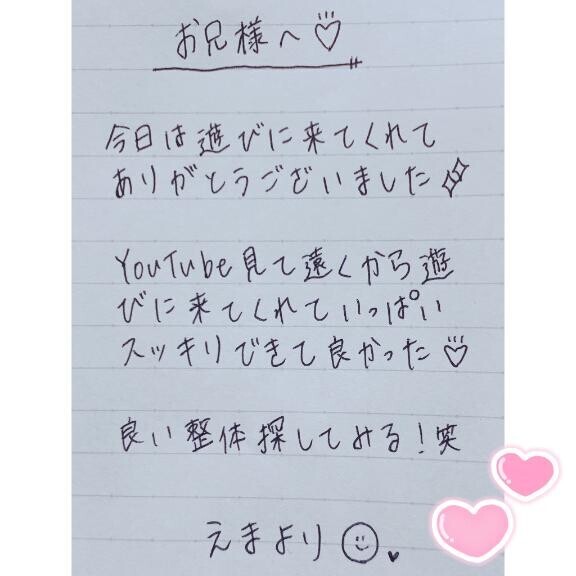 お兄様へ♡
今日は遊びに来てくれて
ありがとうございました
YouTube見て遠くから遊
びに来てくれていっぱい
スッキリできて良かった♡
良い整体探してみる!笑
えまより